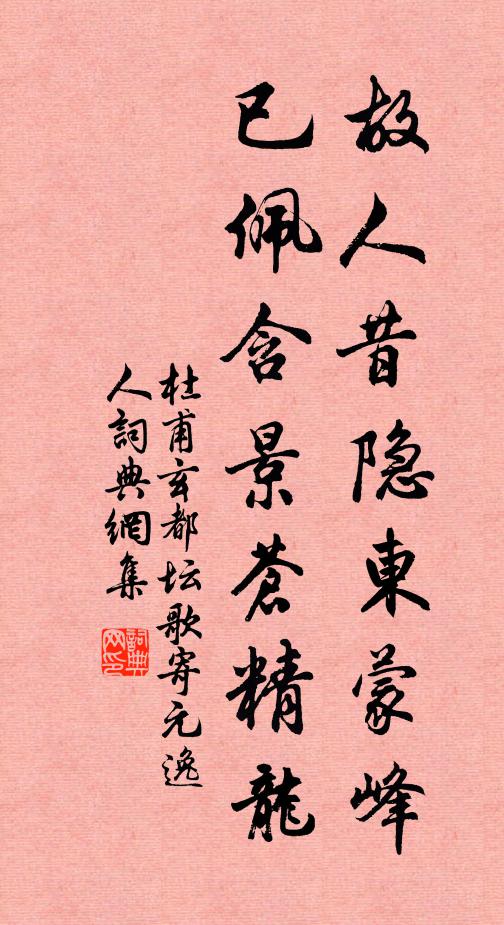 故人昔隐東蒙峰
已佩含景蒼精龍
杜甫玄都坛歌寄元逸
人詞典網集
詞典网印